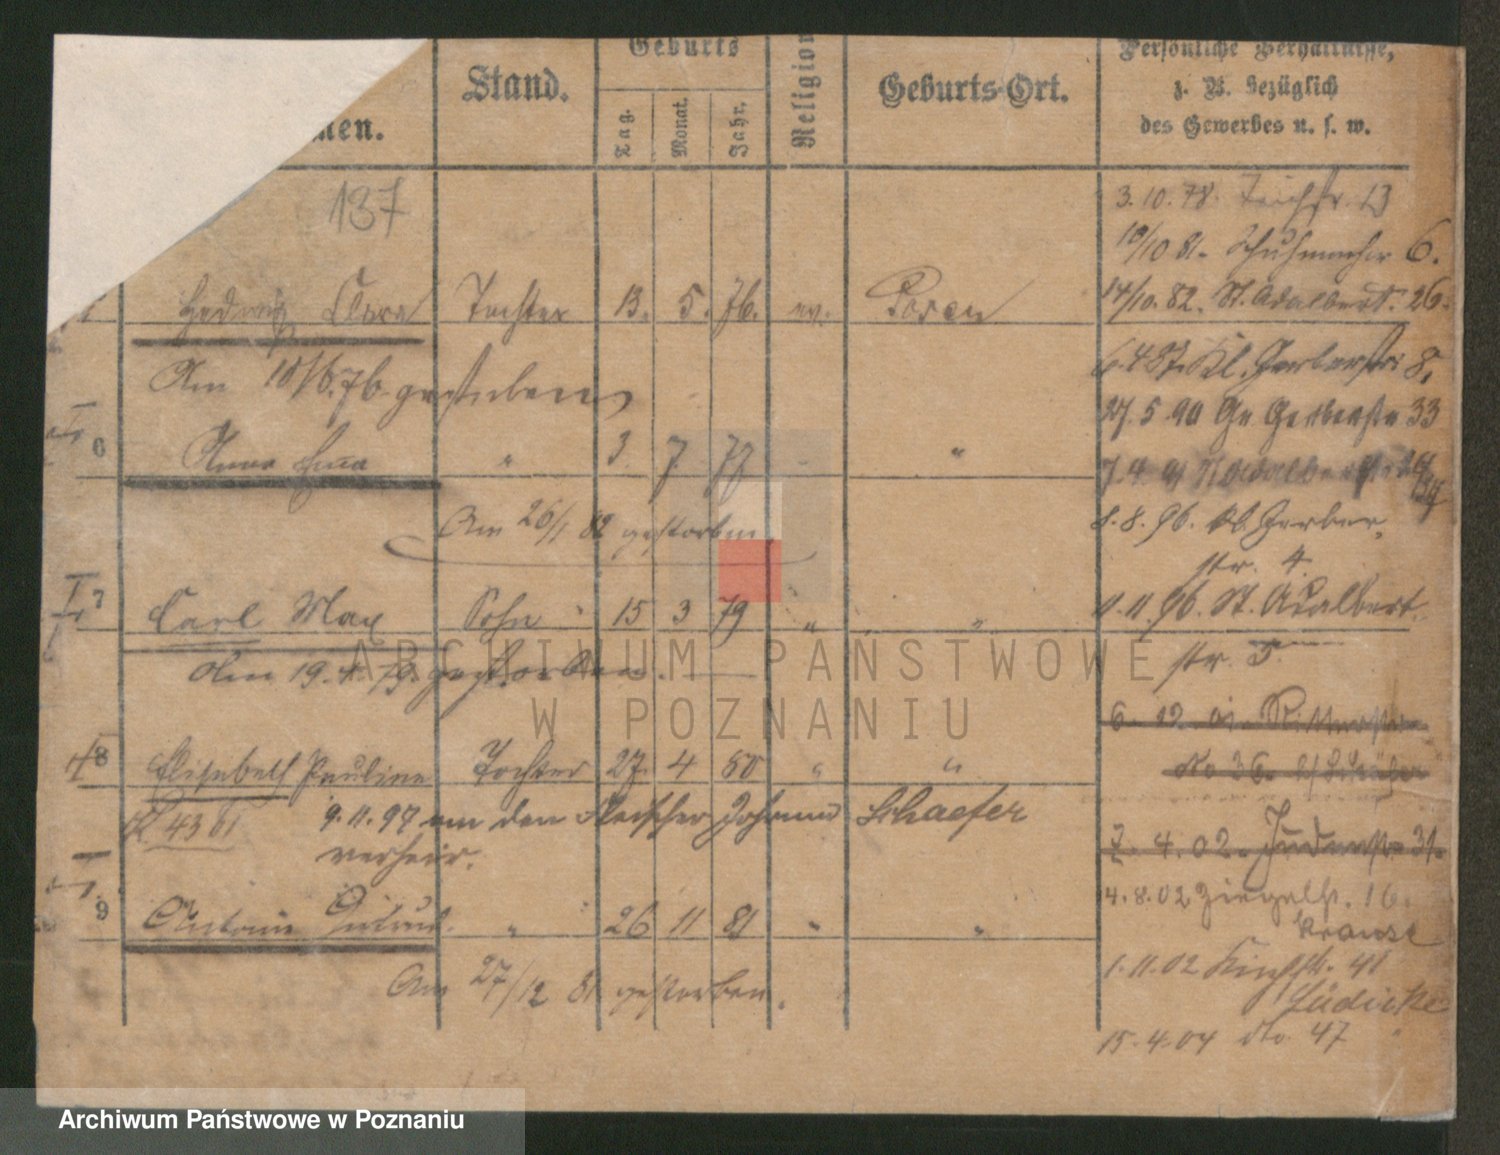 Geburts
Persönliche Verhältnisse,
men.
Stand.
Tag.
Monat.
Jahr.
Religion
Geburts-Ort.
z. B. bezüglich
des Gewerbes u. s. w.
137
3. 10. 78. Teichstr. 13
10/10 81. Schuhmacher 6.
14/10. 82. St. Adalbert. 26.
Hedwig Clara Tochter 13. 5. 76. ev. Posen
Am 18/6. 76. gestorben
6. 4 Kl. Gerberstr. 8.
27. 5. 90 Gr. Gerberstr 33
6 Anna " 3 7 77 "
Am 26/1 82 gestorben
8. 8. 96. Kl. Gerber-
str. 4.
7 Carl Max Sohn 15 3 79 " "
Am 19. 4. 79. gestorben.
11. 11. 96. St. Adalbert
str. 5.
8 Elisabeth Pauline Tochter 27. 4 80 " "
9. 11. 97 an den Fleischer Johann Schaefer
verheir.
6. 12. 01. Ritterstr.
No 36. b/ Schäfer
7. 4. 02. Judenstr. 31.
4. 8. 02 Ziegelstr. 16.
Krause
9 Antonie " 26 11 81 " "
Am 27/12 81 gestorben.
1. 11. 02 Kirchstr. 41
Lüdicke
15. 4. 04 do. 47
ARCHIWUM PAŃSTWOWE
W POZNANIU
Archiwum Państwowe w Poznaniu